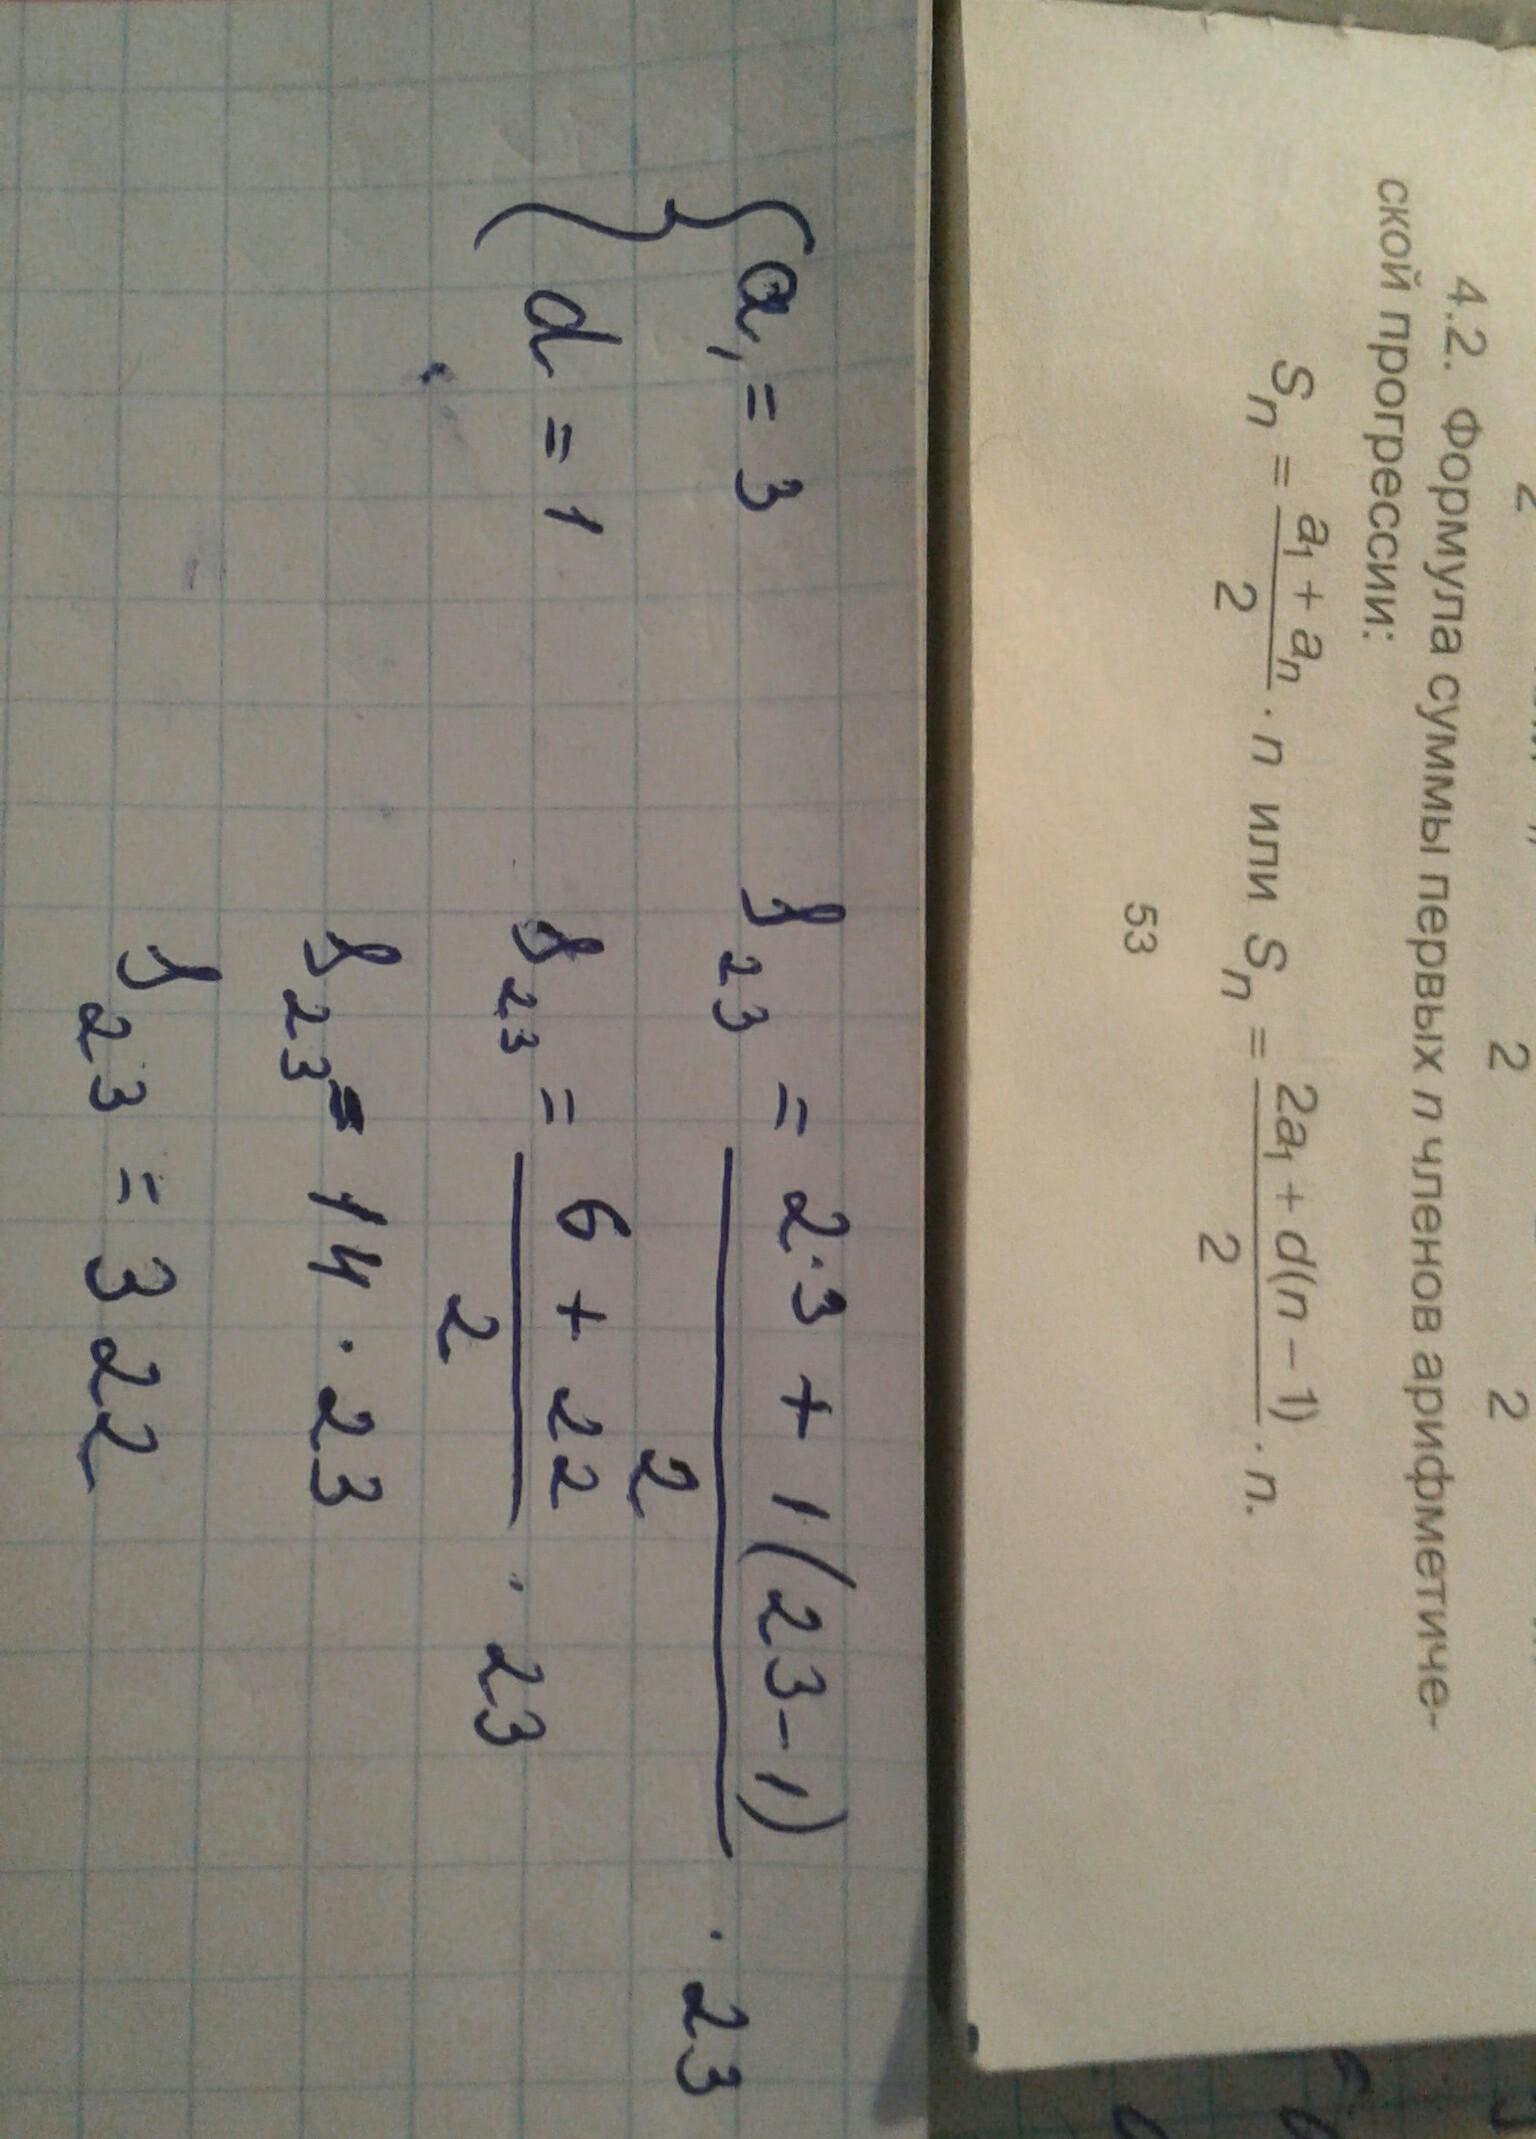 2 2 2
4.2. Формула суммы первых n членов арифметиче-
ской прогрессии:
Sₙ = (a₁ + aₙ)/2 · n или Sₙ = (2a₁ + d(n − 1))/2 · n.
53
{ a₁ = 3
d = 1
S₂₃ = (2·3 + 1(23−1))/2 · 23
S₂₃ = (6 + 22)/2 · 23
S₂₃ = 14 · 23
S₂₃ = 322